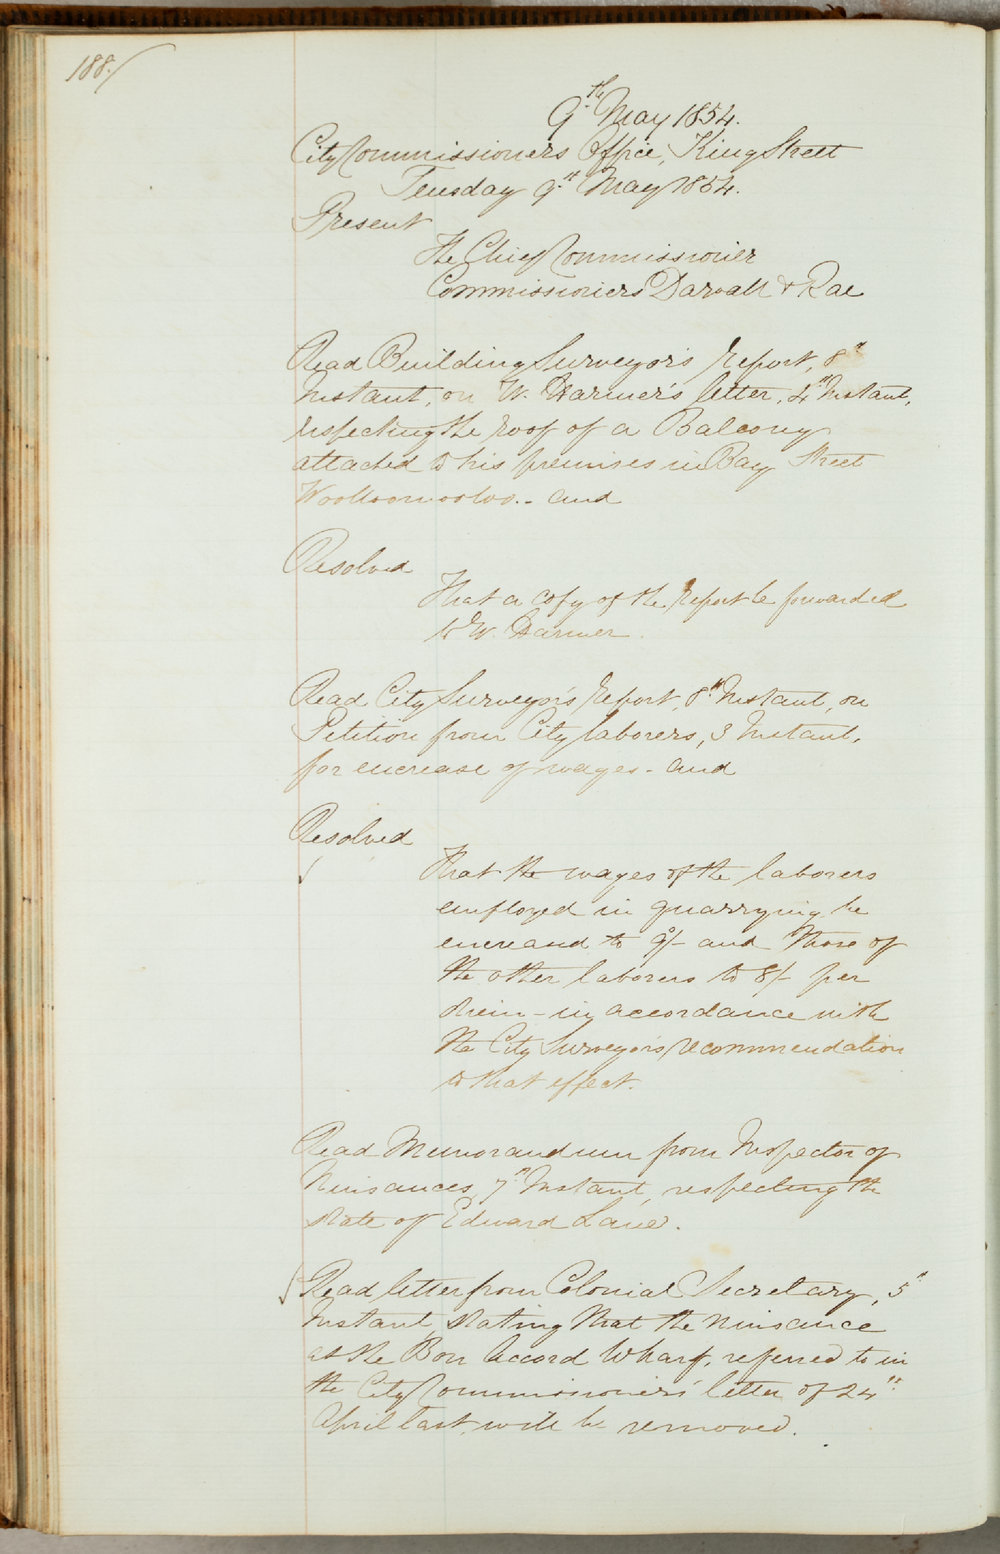 188./
9th May 1854.
City Commissioners Office, King Street
Tuesday 9th May 1854.
Present
The Chief Commissioner
Commissioners Darvall & Rae
Read Building Surveyor's report, 8th
Instant, on W. Farmer's letter, 4th Instant,
respecting the roof of a Balcony
attached to his premises in Bay Street
Woolloomooloo.. and
Resolved
That a copy of the report be forwarded
to W. Farmer.
Read City Surveyor's report, 8th Instant, on
Petition from City laborers, 3 Instant,
for encrease of wages - and
Resolved
That the wages of the laborers
employed in quarrying be
encreased to 9/- and those of
the other laborers to 8/- per
diem - in accordance with
the City Surveyor's recommendation
to that effect.
Read Memorandum from Inspector of
Nuisances, 7th Instant, respecting the
state of Edward Lane.
Read letter from Colonial Secretary, 5th
Instant, stating that the nuisance
at the Bon Accord Wharf, referred to in
the City Commissioners' letter of 24th
April last, will be removed.